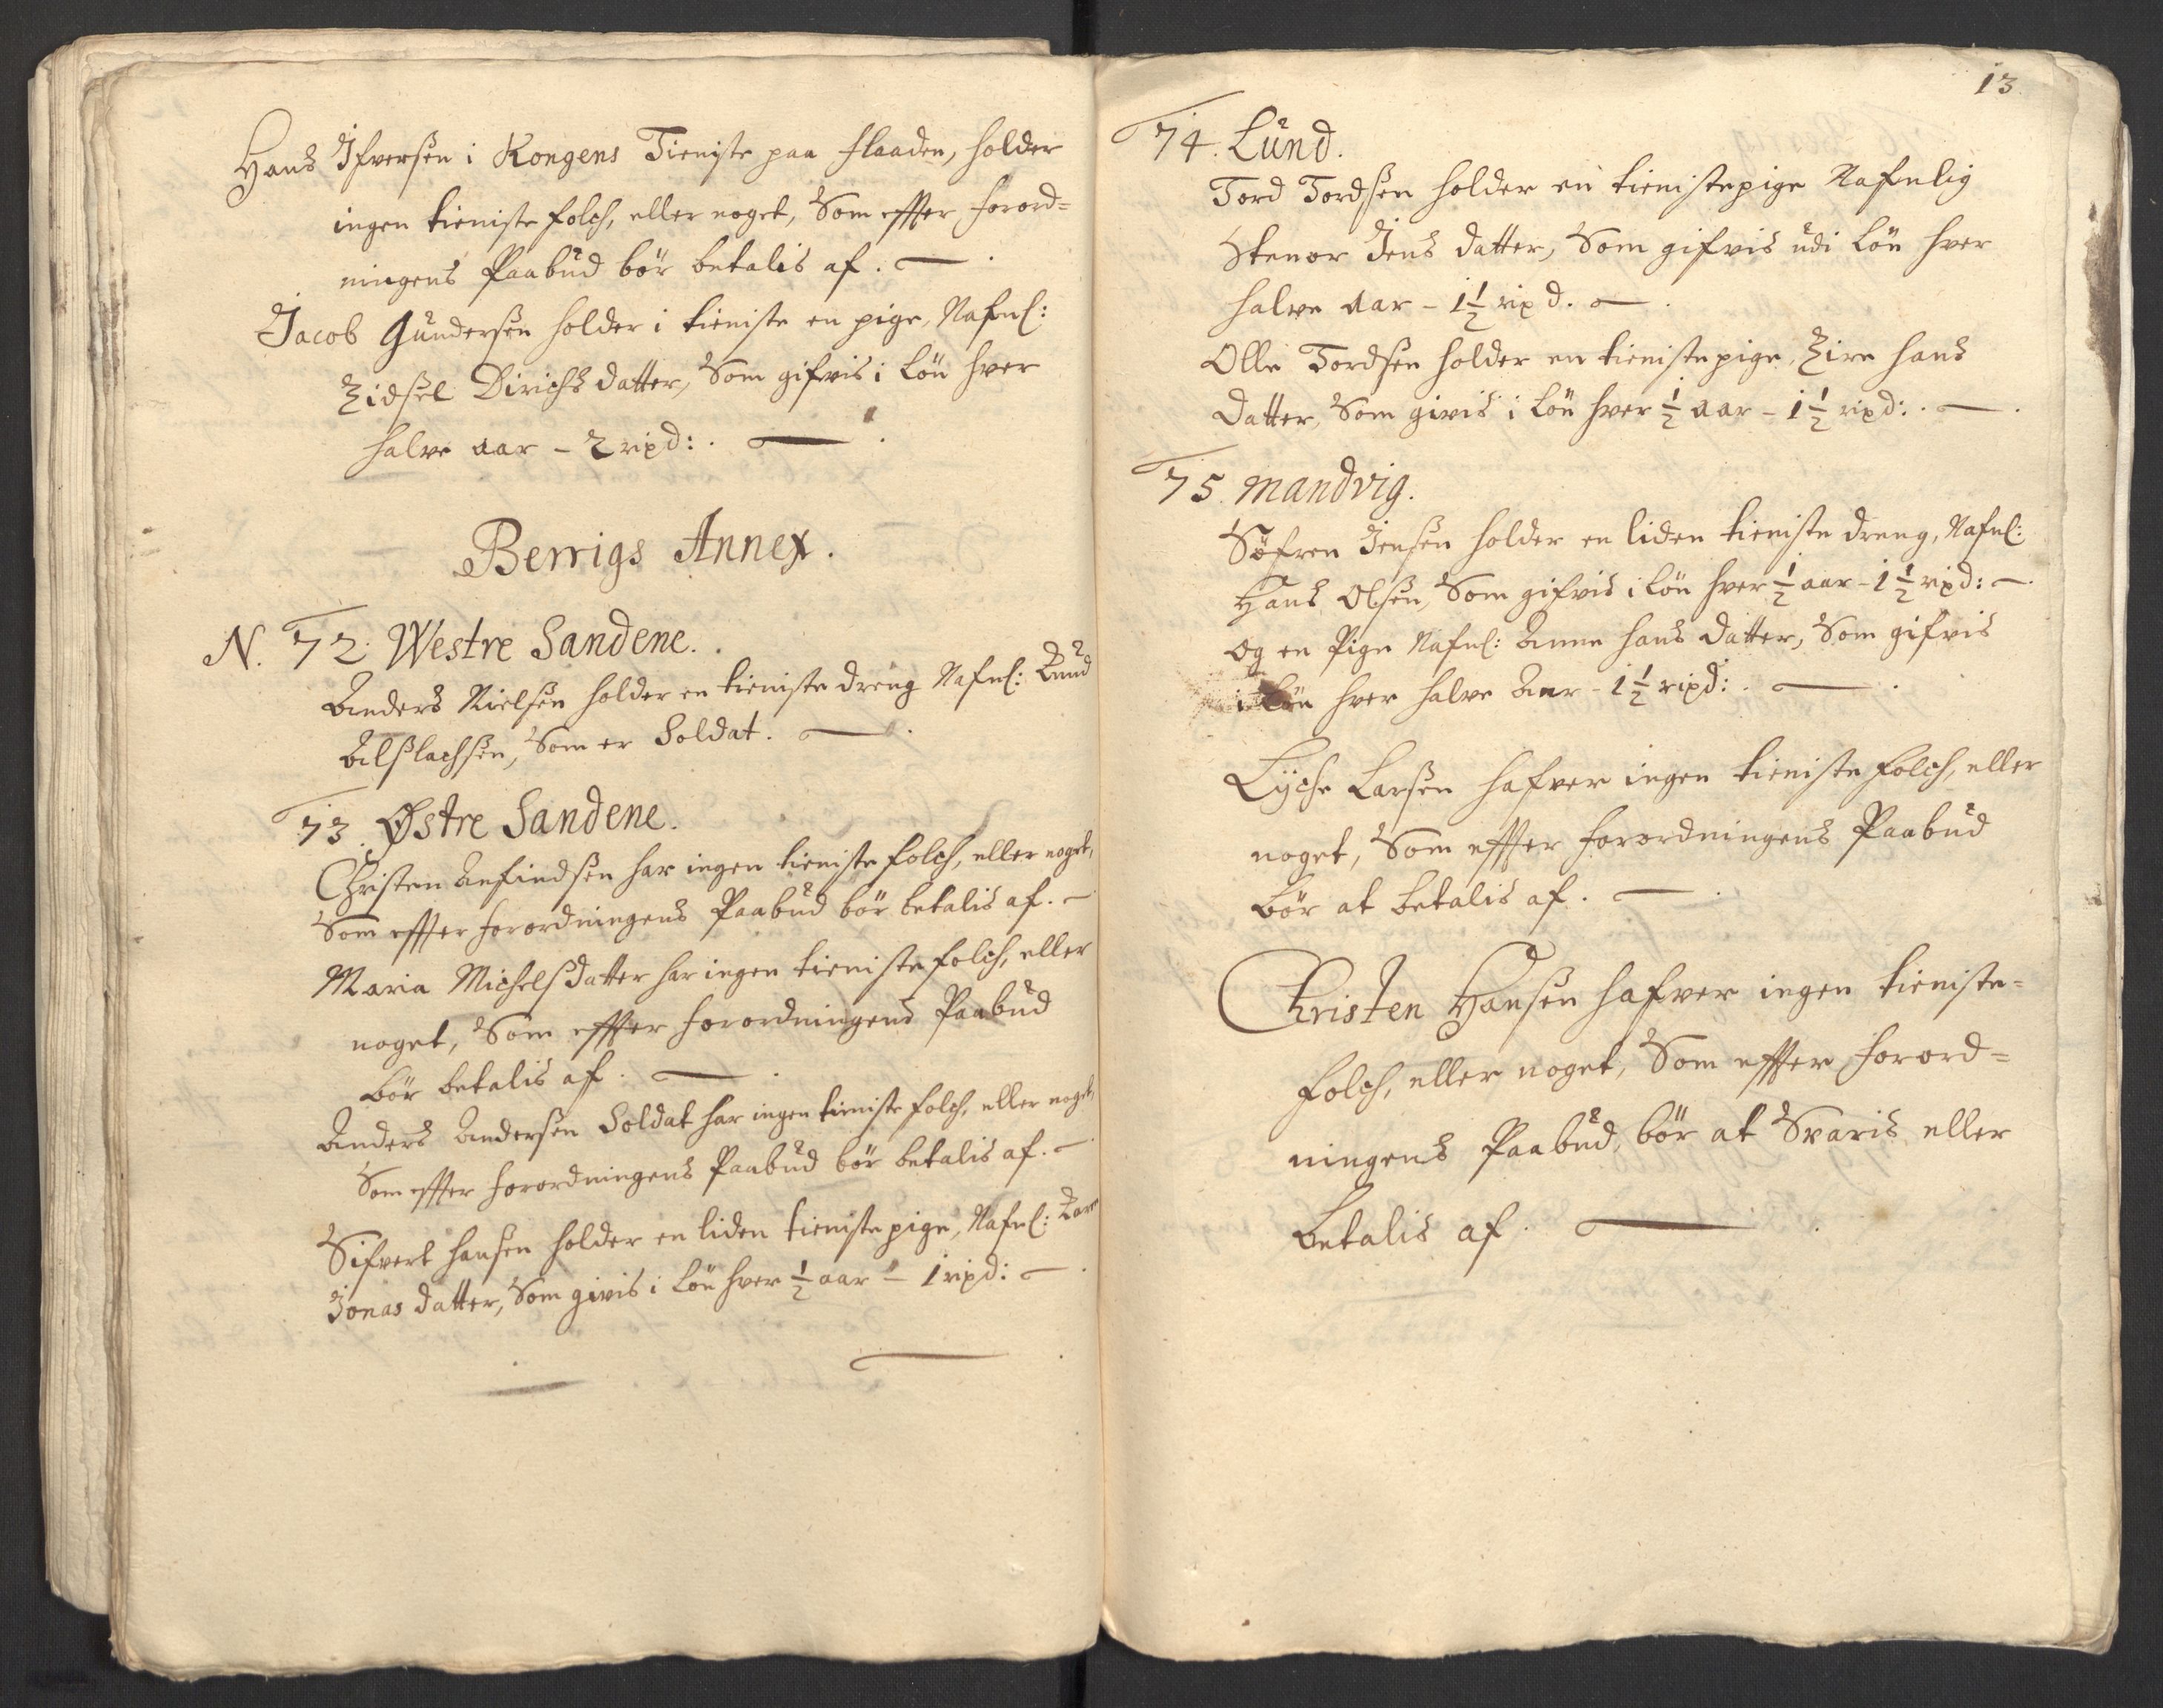 Hans Ifversen i Kongens Tieniste paa flaaden, holder
ingen tieniste folch, eller noget, Som effter forord=
ningens Paabud bør betalis af.
Jacob Gundersen holder i tieniste en pige, Nafnl:
Zidsel Dirichs datter, Som gifvis i løn hver
halve aar - 2 rixd:.
Berrigs Annex.
N. 72. Westre Sandene.
Anders Nielsen holder en tieniste dreng Nafnl: Knud
Alsslachsen, Som er Soldat.
73. Østre Sandene.
Christen Anfindsen har ingen tieniste folch, eller noget,
Som effter forordningens Paabud bør betalis af.
Maria Michelsdatter har ingen tieniste folch, eller
noget, Som effter forordningens Paabud
bør betalis af.
Anders Andersen Soldat har ingen tieniste folch, eller noget,
Som effter forordningens Paabud bør betalis af.
Sifvert hansen holder en liden tieniste pige, Nafnl: Karen
Jonas datter, Som givis i løn hver ½ aar - 1 rixd:
13.
74. Lund.
Tord Tordsen holder en tienistepige Nafnlig
Stenor Jens datter, Som gifvis udi løn hver
halve aar - 1½ rixd.
Olle Tordsen holder en tienistepige, Zire hans
datter, Som givis i løn hver ½ aar - 1½ rixd:.
75. Mandvig.
Søfren Jensen holder en liden tieniste dreng, Nafnl:
Hans Olsen, Som gifvis i løn hver ½ aar - 1½ rixd:
og en Pige Nafnl: Anne hans datter, Som gifvis
i løn hver halve Aar - 1½ rixd:.
Lyche Larsen hafver ingen tieniste folch, eller
noget, Som effter forordningens Paabud
bør at betalis af.
Christen Hansen hafver ingen tieniste=
folch, eller noget, Som effter forord=
ningens Paabud, bør at Svaris eller
betalis af.